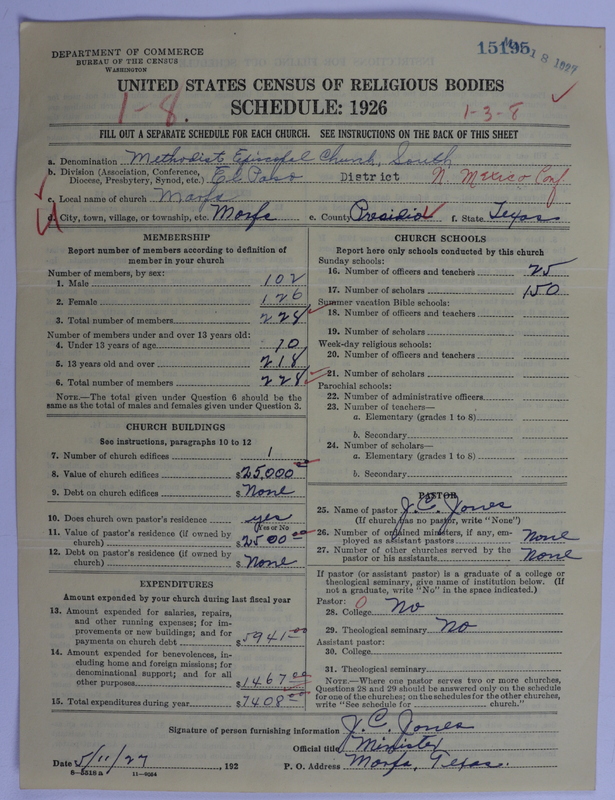 DEPARTMENT OF COMMERCE
BUREAU OF THE CENSUS
WASHINGTON
15195
18 1927
UNITED STATES CENSUS OF RELIGIOUS BODIES
SCHEDULE: 1926
1-8.
1-3-8
FILL OUT A SEPARATE SCHEDULE FOR EACH CHURCH. SEE INSTRUCTIONS ON THE BACK OF THIS SHEET
a. Denomination Methodist Episcopal Church, South
b. Division (Association, Conference, Diocese, Presbytery, Synod, etc.) El Paso District N. Mexico Conf
c. Local name of church Marfa
d. City, town, village, or township, etc. Marfa e. County Presidio f. State Texas
MEMBERSHIP
Report number of members according to definition of
member in your church
Number of members, by sex:
1. Male 102
2. Female 126
3. Total number of members 228
Number of members under and over 13 years old:
4. Under 13 years of age 10
5. 13 years old and over 218
6. Total number of members 228
NOTE.—The total given under Question 6 should be
same as the total of males and females given under Question 3.
CHURCH BUILDINGS
See instructions, paragraphs 10 to 12
7. Number of church edifices 1
8. Value of church edifices $25,000.00
9. Debt on church edifices $None
10. Does church own pastor's residence yes
(Yes or No)
11. Value of pastor's residence (if owned by
church) $2500.00
12. Debt on pastor's residence (if owned by
church) $None
EXPENDITURES
Amount expended by your church during last fiscal year
13. Amount expended for salaries, repairs,
and other running expenses; for im-
provements or new buildings; and for
payments on church debt $5941.00
14. Amount expended for benevolences, in-
cluding home and foreign missions; for
denominational support; and for all
other purposes $1467.00
15. Total expenditures during year $7408.00
CHURCH SCHOOLS
Report here only schools conducted by this church
Sunday schools:
16. Number of officers and teachers 25
17. Number of scholars 150
Summer vacation Bible schools:
18. Number of officers and teachers
19. Number of scholars
Week-day religious schools:
20. Number of officers and teachers
21. Number of scholars
Parochial schools:
22. Number of administrative officers
23. Number of teachers—
a. Elementary (grades 1 to 8)
b. Secondary
24. Number of scholars—
a. Elementary (grades 1 to 8)
b. Secondary
PASTOR
25. Name of pastor J. C. Jones
(If church has no pastor, write "None")
26. Number of ordained ministers, if any, em-
ployed as assistant pastors None
27. Number of other churches served by the
pastor or his assistants None
If pastor (or assistant pastor) is a graduate of a college or
theological seminary, give name of institution below. (If
not a graduate, write "No" in the space indicated.)
Pastor: 0
28. College No
29. Theological seminary No
Assistant pastor:
30. College
31. Theological seminary
NOTE.—Where one pastor serves two or more churches,
Questions 28 and 29 should be answered only on the schedule
for one of the churches; on the schedules for the other churches,
write "See schedule for church."
Signature of person furnishing information J. C. Jones
Official title Minister
Date 5/11/27, 192 P. O. Address Marfa, Texas.
8-5518 a 11-9094